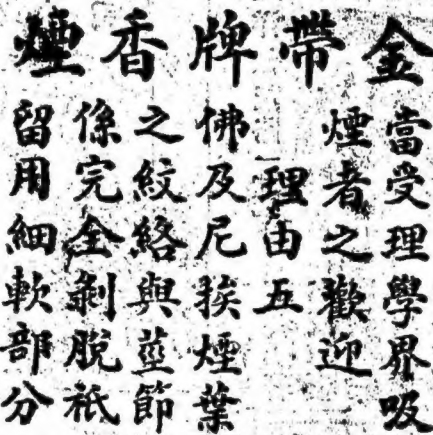 金帶牌香煙
當受理學界吸
煙者之歡迎
理由五
佛及尼挨煙葉
之紋絡與莖節
係完全剝脫祇
留用細軟部分